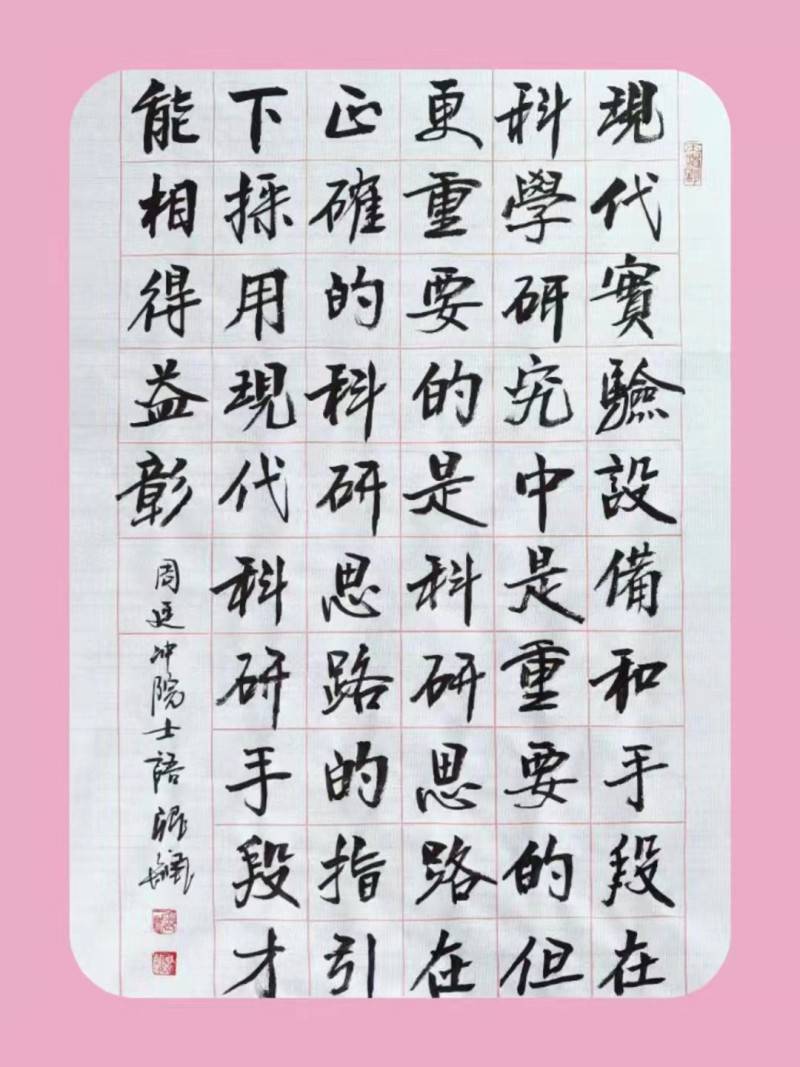 現代實驗設備和手段在
科學研究中是重要的但
更重要的是科研思路在
正確的科研思路的指引
下採用現代科研手段才
能相得益彰
周廷沖院士語